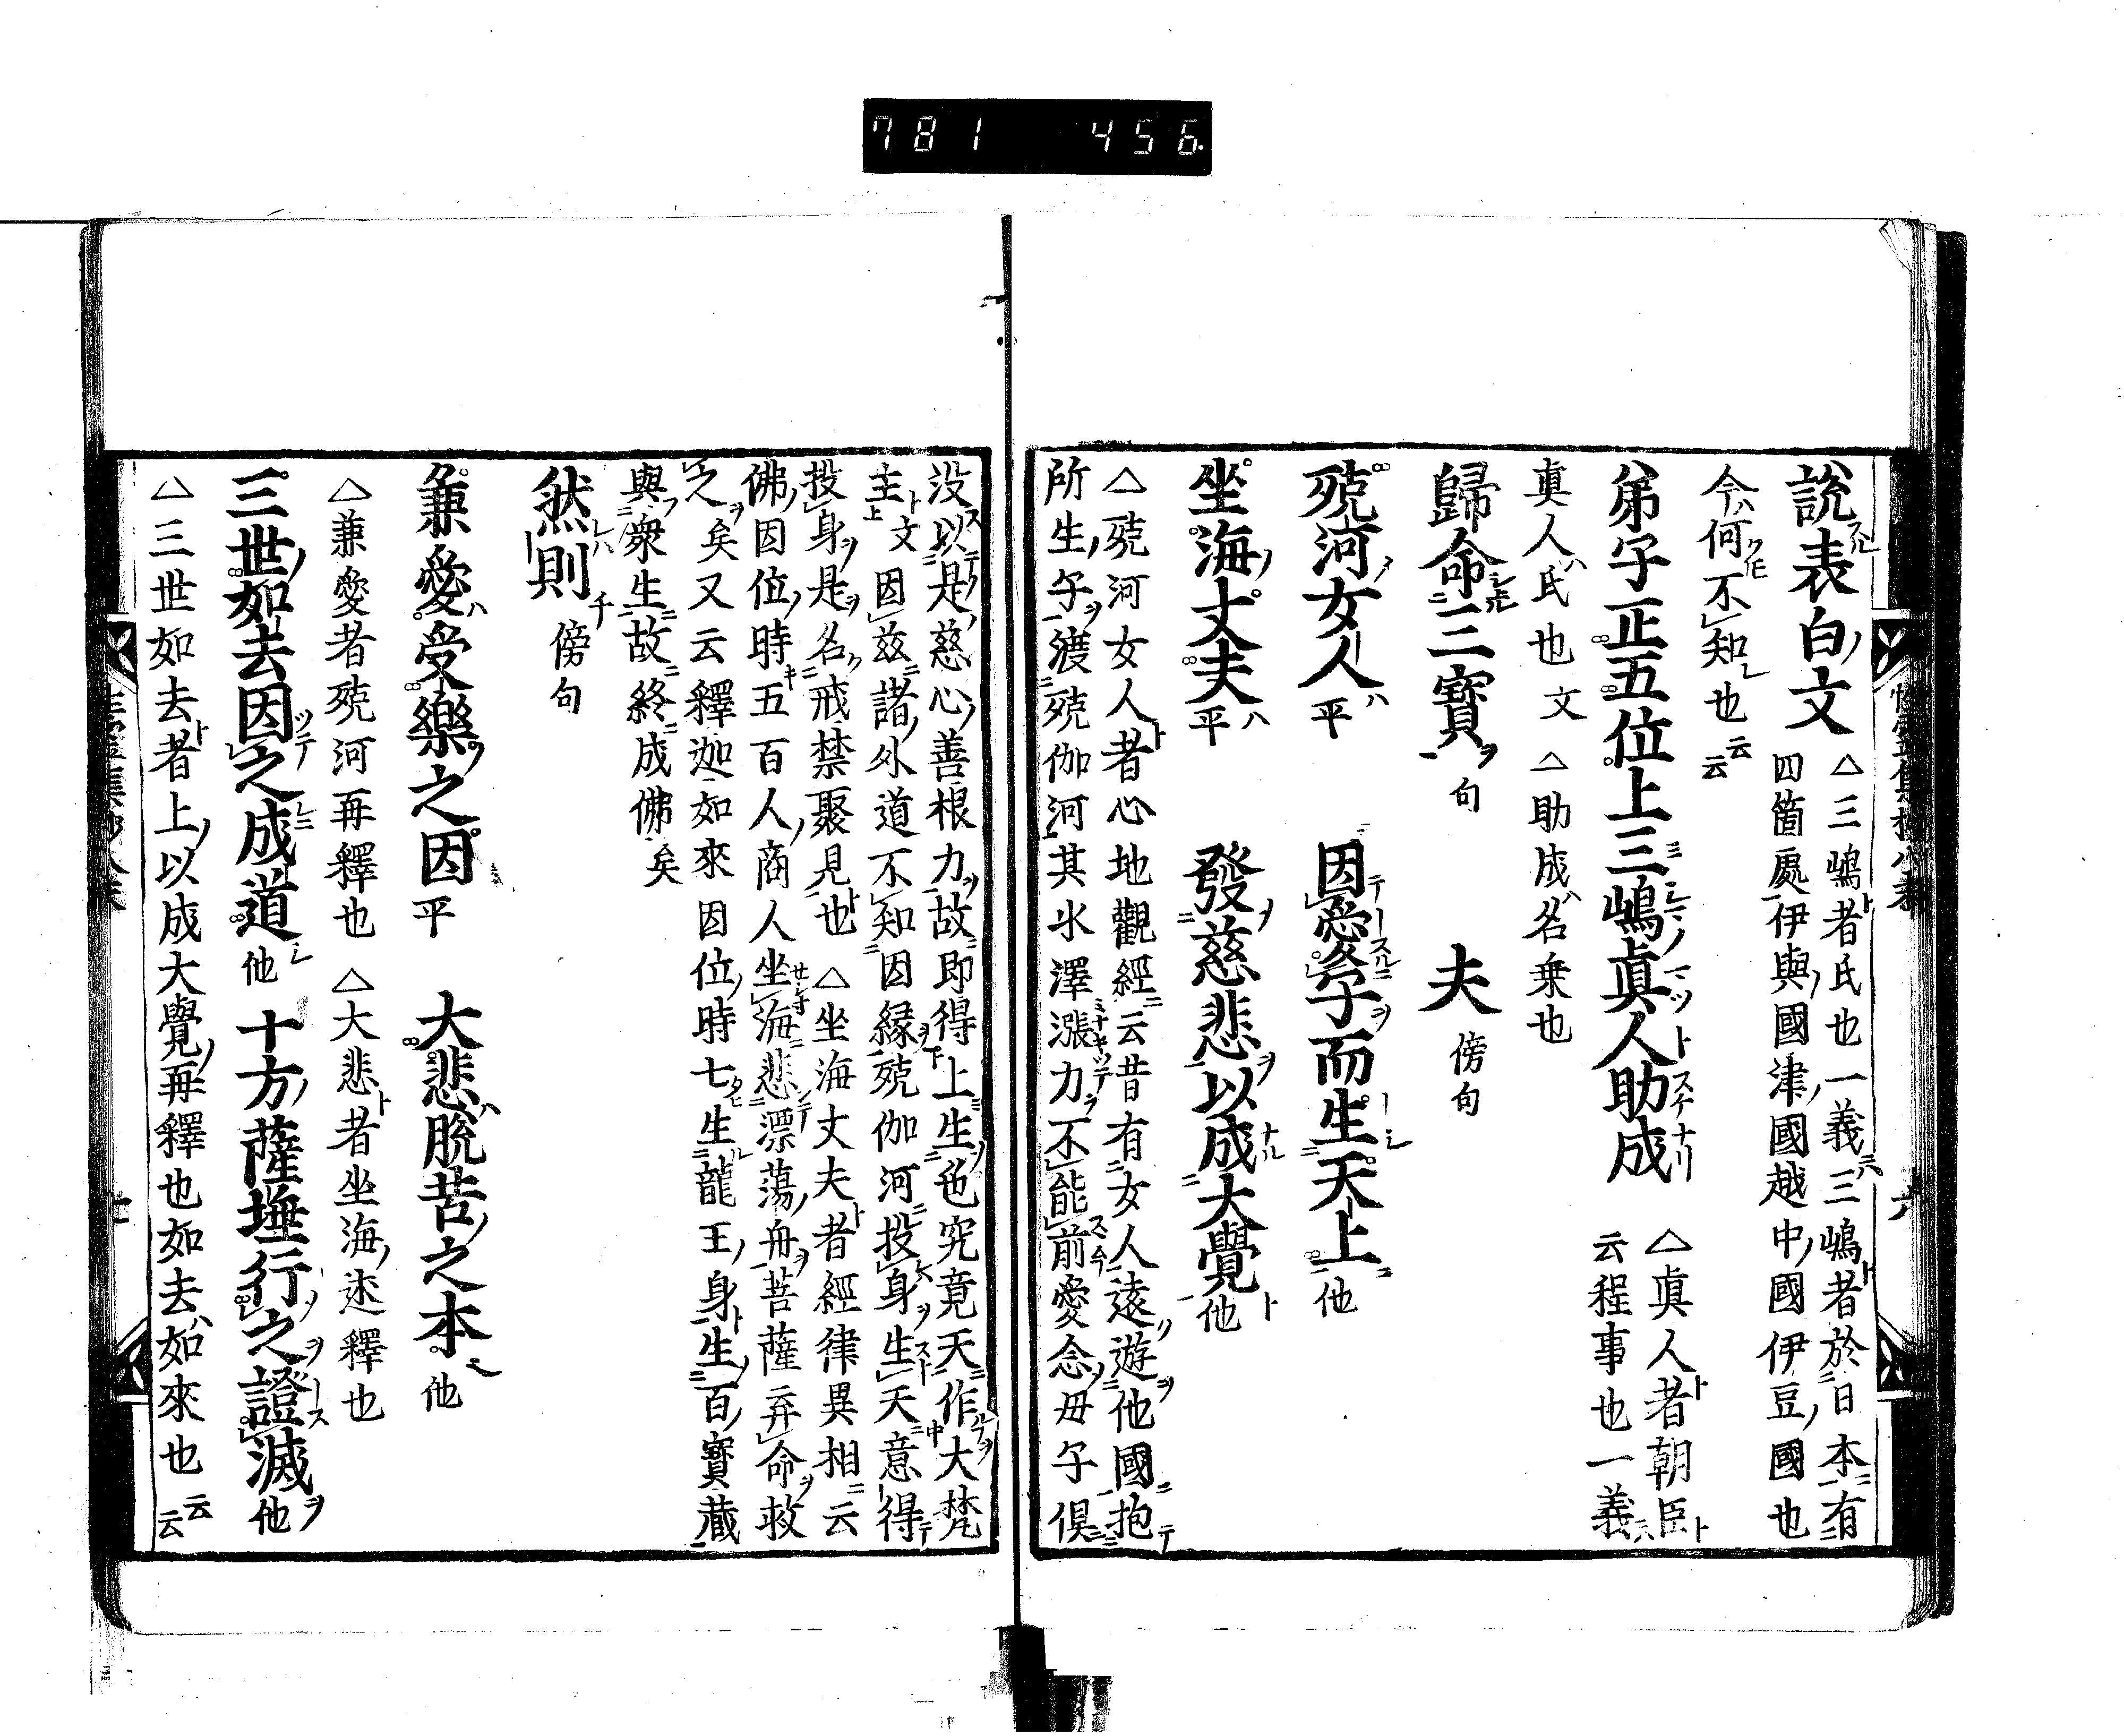 781 456
説表白文 △三嶋者氏也一義三嶋者於日本有
四箇處伊與國津國越中國伊豆國也
今何不知也云云
弟子正五位上三嶋眞人助成 △眞人者朝臣
云程事也一義
眞人氏也文 △助成名乗也
歸命三寳句 夫傍句
殑河女人平 因愛子而生天上他
坐海丈夫平 發慈悲以成大覺他
△殑河女人者心地觀經云昔有女人遠遊他國抱
所生子渡殑伽河其水澤漲力不能前愛念母子倶
没以是慈心善根力故即得上生色究竟天作大梵
主文因茲諸外道不知因縁殑伽河投身生天意得
投身是名戒禁聚見也 △坐海丈夫者經律異相云
佛因位時五百人商人坐海悲漂蕩舟菩薩弃命救
之矣又云釋迦如來因位時七生龍王身生百寳藏
與衆生故終成佛矣
然則傍句
兼愛受樂之因平 大悲脱苦之本他
△兼愛者殑河再釋也 △大悲者坐海迹釋也
三世如去因之成道他 十方薩埵行之證滅他
△三世如去者上以成大覺再釋也如去如來也云云